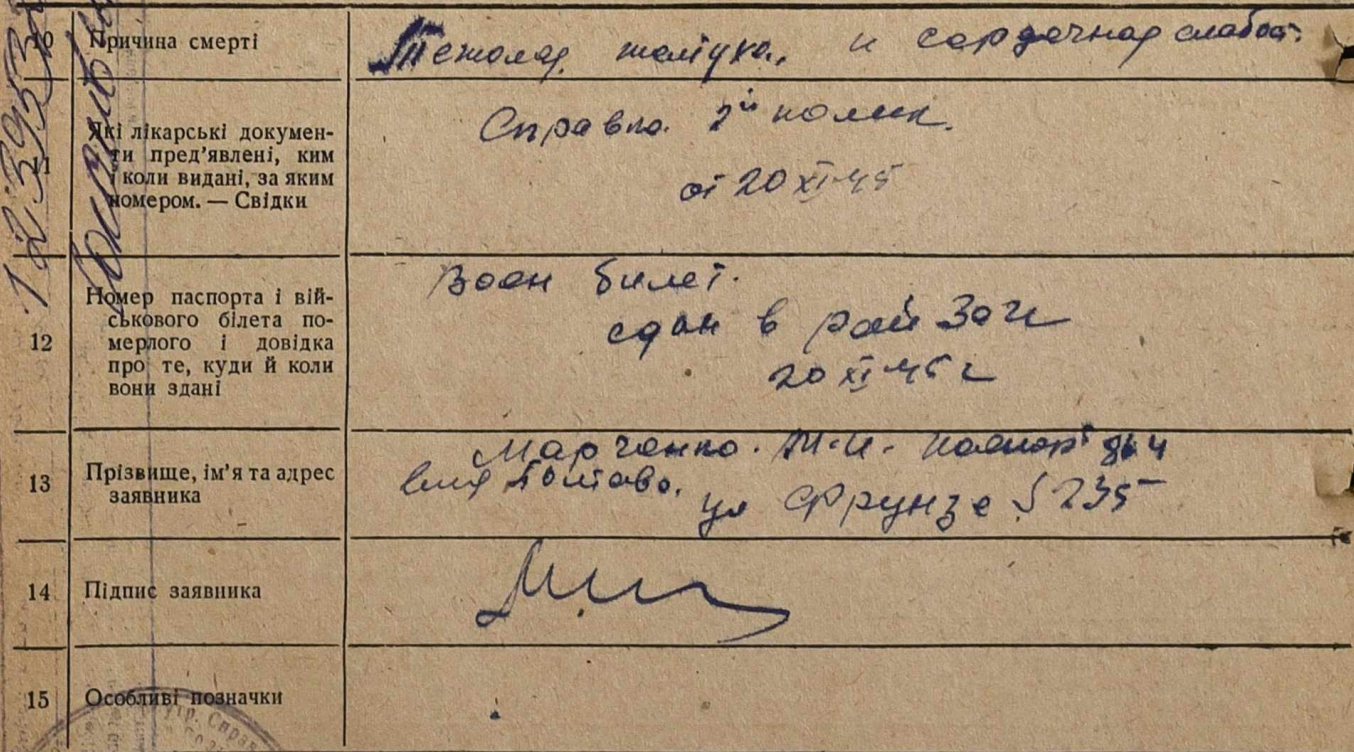 10 Причина смерти
Тежолая желтуха, и сердечная слабост.
11 Які лікарські докумен-
ти пред’явлені, ким
і коли видані, за яким
номером. — Свідки
Справка 2й полик.
от 20 XI-45
12 Номер паспорта і вій-
ськового білета по-
мерлого і довідка
про те, куди й коли
вони здані
Воен билет.
сдан в рай Загс
20 XI-45 г
13 Прізвище, ім’я та адрес
заявника
Марченко. М-И- паспорт
Полтава.
ул Фрунзе 235
14 Підпис заявника
15 Особливі позначки